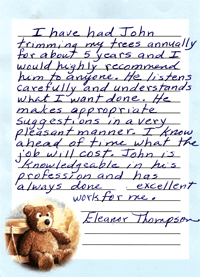 I have had John
trimming my trees annually
for about 5 years and I
would highly recommend
him to anyone. He listens
carefully and understands
what I want done. He
makes appropriate
suggestions in a very
pleasant manner. I know
ahead of time what the
job will cost. John is
knowledgeable in his
profession and has
always done excellent
work for me.
Eleanor Thompson